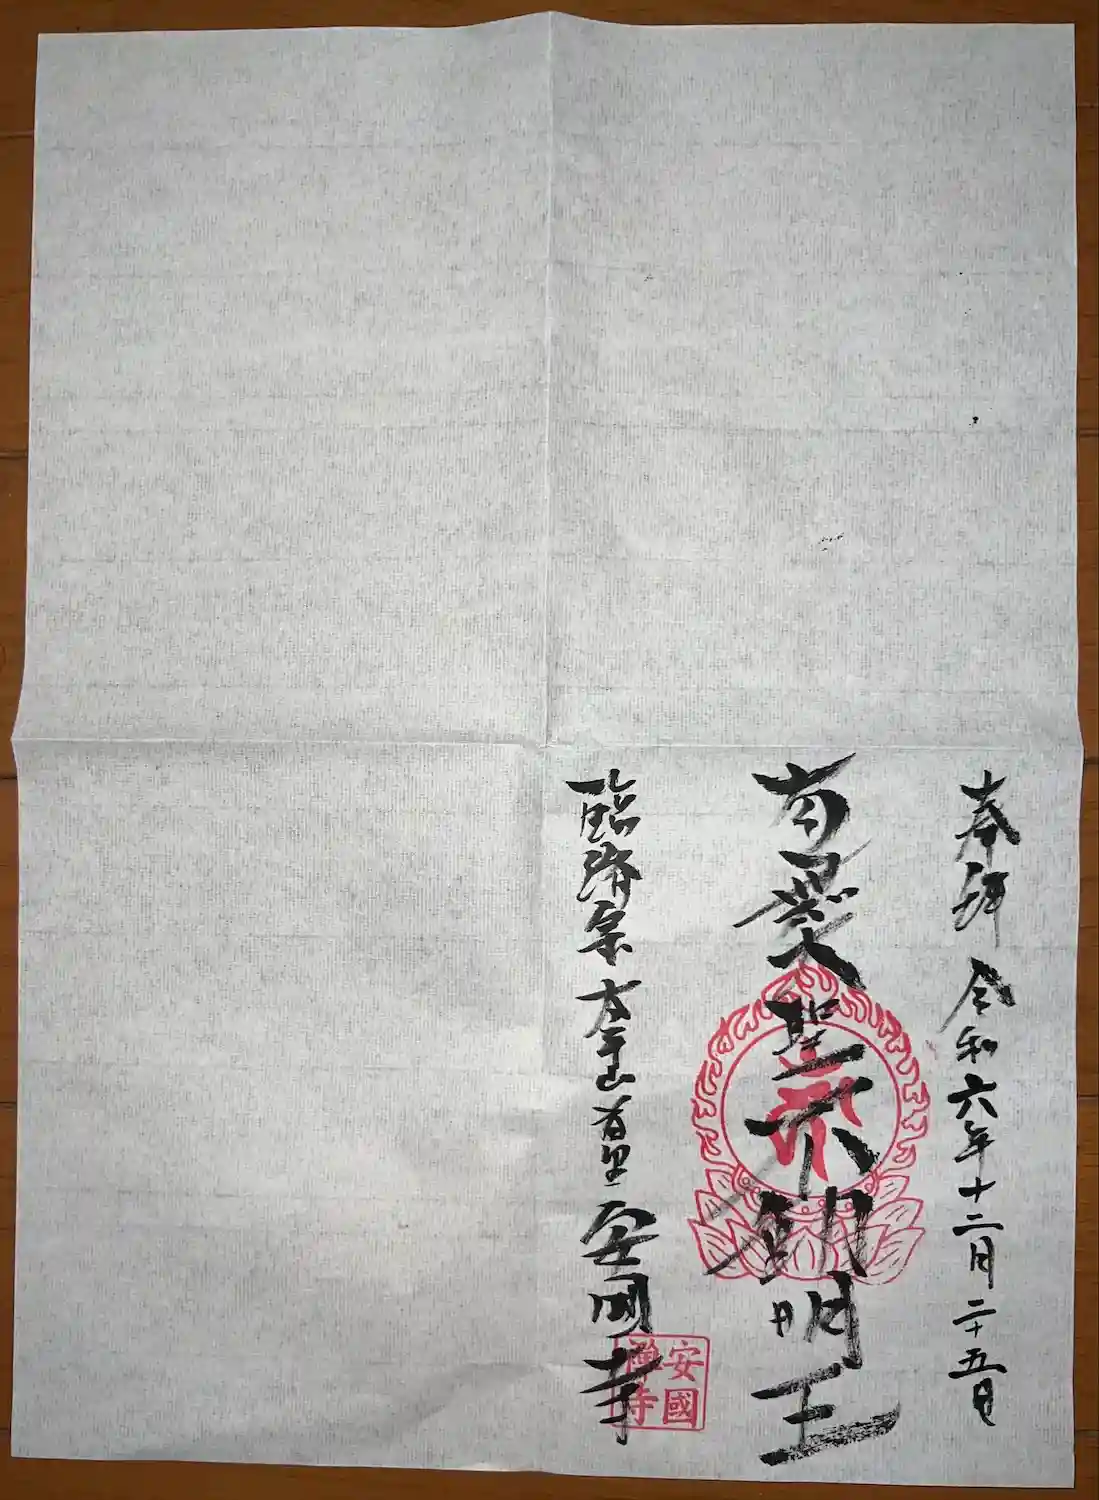 奉拜 令和六年十二月二十五日
南無大聖不動明王
臨済宗 太平山 首里 安国寺
安國
禅寺